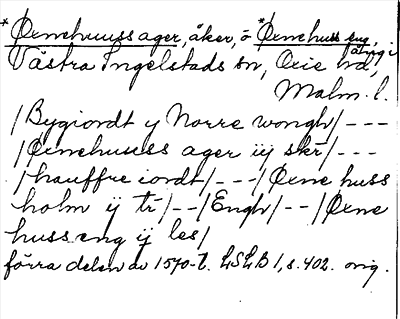 *Ørnehuuss ager, åker, ö *Ørne huss eng, äng i
Västra Ingelstads sn, Oxie hd,
Malm. l.
/Bygiordt y Norre wongh/---
/Ørnehuuss ager iij skr/---
/hauffre iordt/---/Ørne huss
holm ij tr/--/Engh/--/Ørne
huss eng ij les/
förra delen av 1570-t. LSLB 1, s. 402. orig.